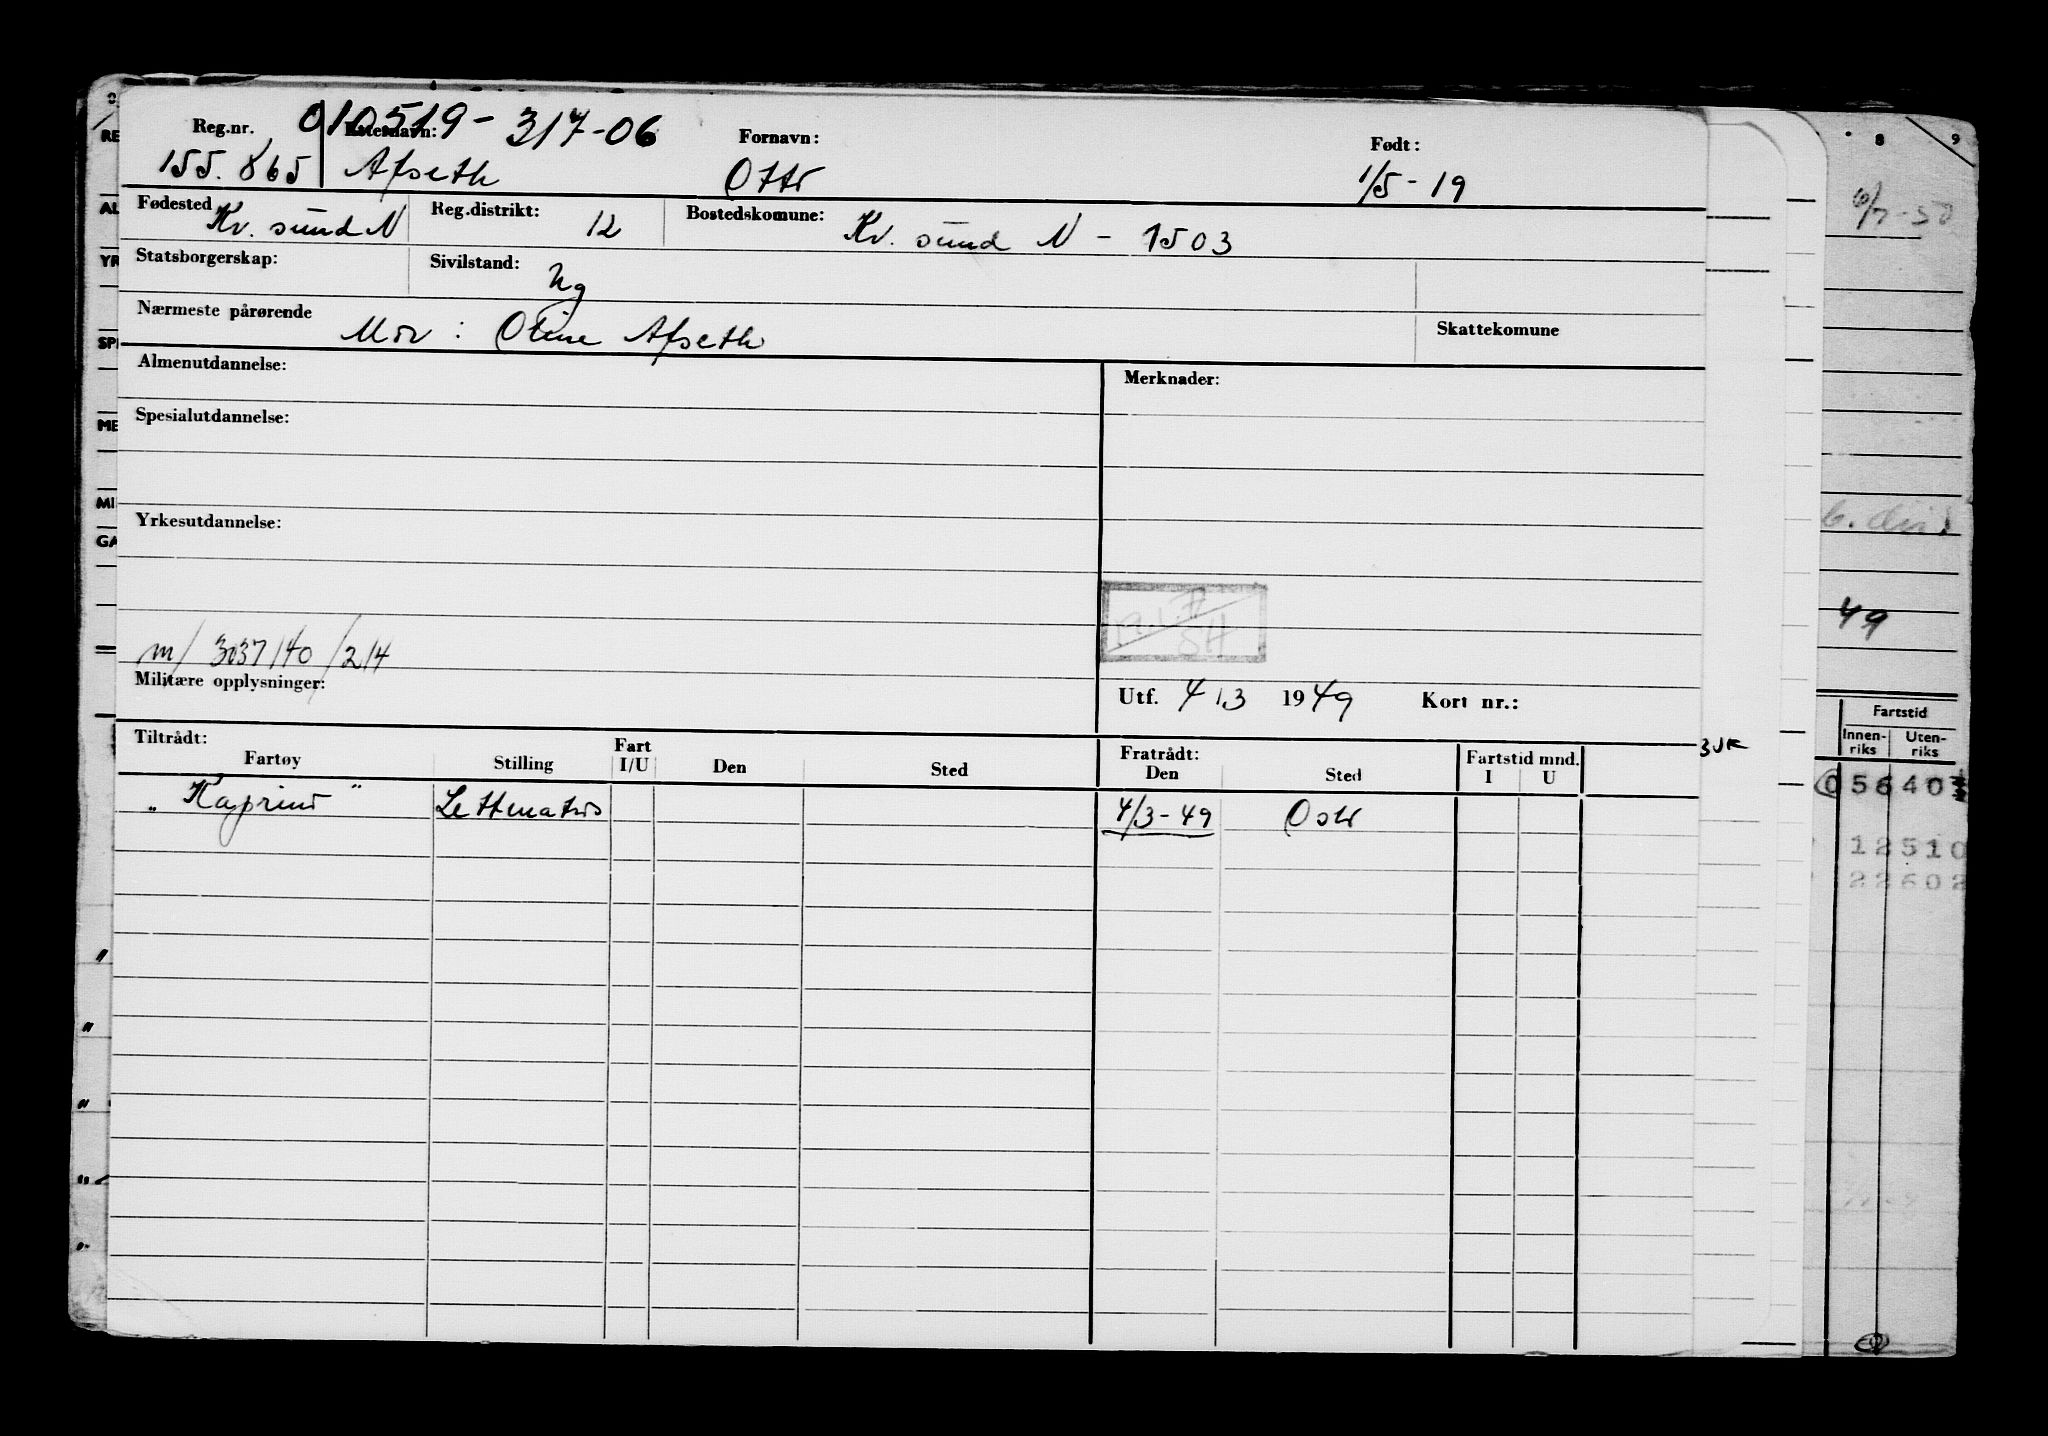 010519-317-06
Reg.nr. Etternavn: Fornavn: Født:
155.865 Afseth Otto 1/5-19
Fødested Kv. sund N Reg.distrikt: 12 Bostedskomune: Kv. sund N - 1503
Statsborgerskap: Sivilstand: Ug
Nærmeste pårørende Mor: Oline Afseth Skattekomune
Almenutdannelse: Merknader:
Spesialutdannelse:
Yrkesutdannelse:
m/ 3037/40/214
Militære opplysninger: Utf. 4/3 1949 Kort nr.:
Tiltrådt: Fart Fratrådt: Fartstid mnd.
Fartøy Stilling I/U Den Sted Den Sted I U
Lettmatros 4/3-49 Oslo
8 9
6/7-50
49
Fartstid
Innen-riks Uten-riks
05640
12510
22602